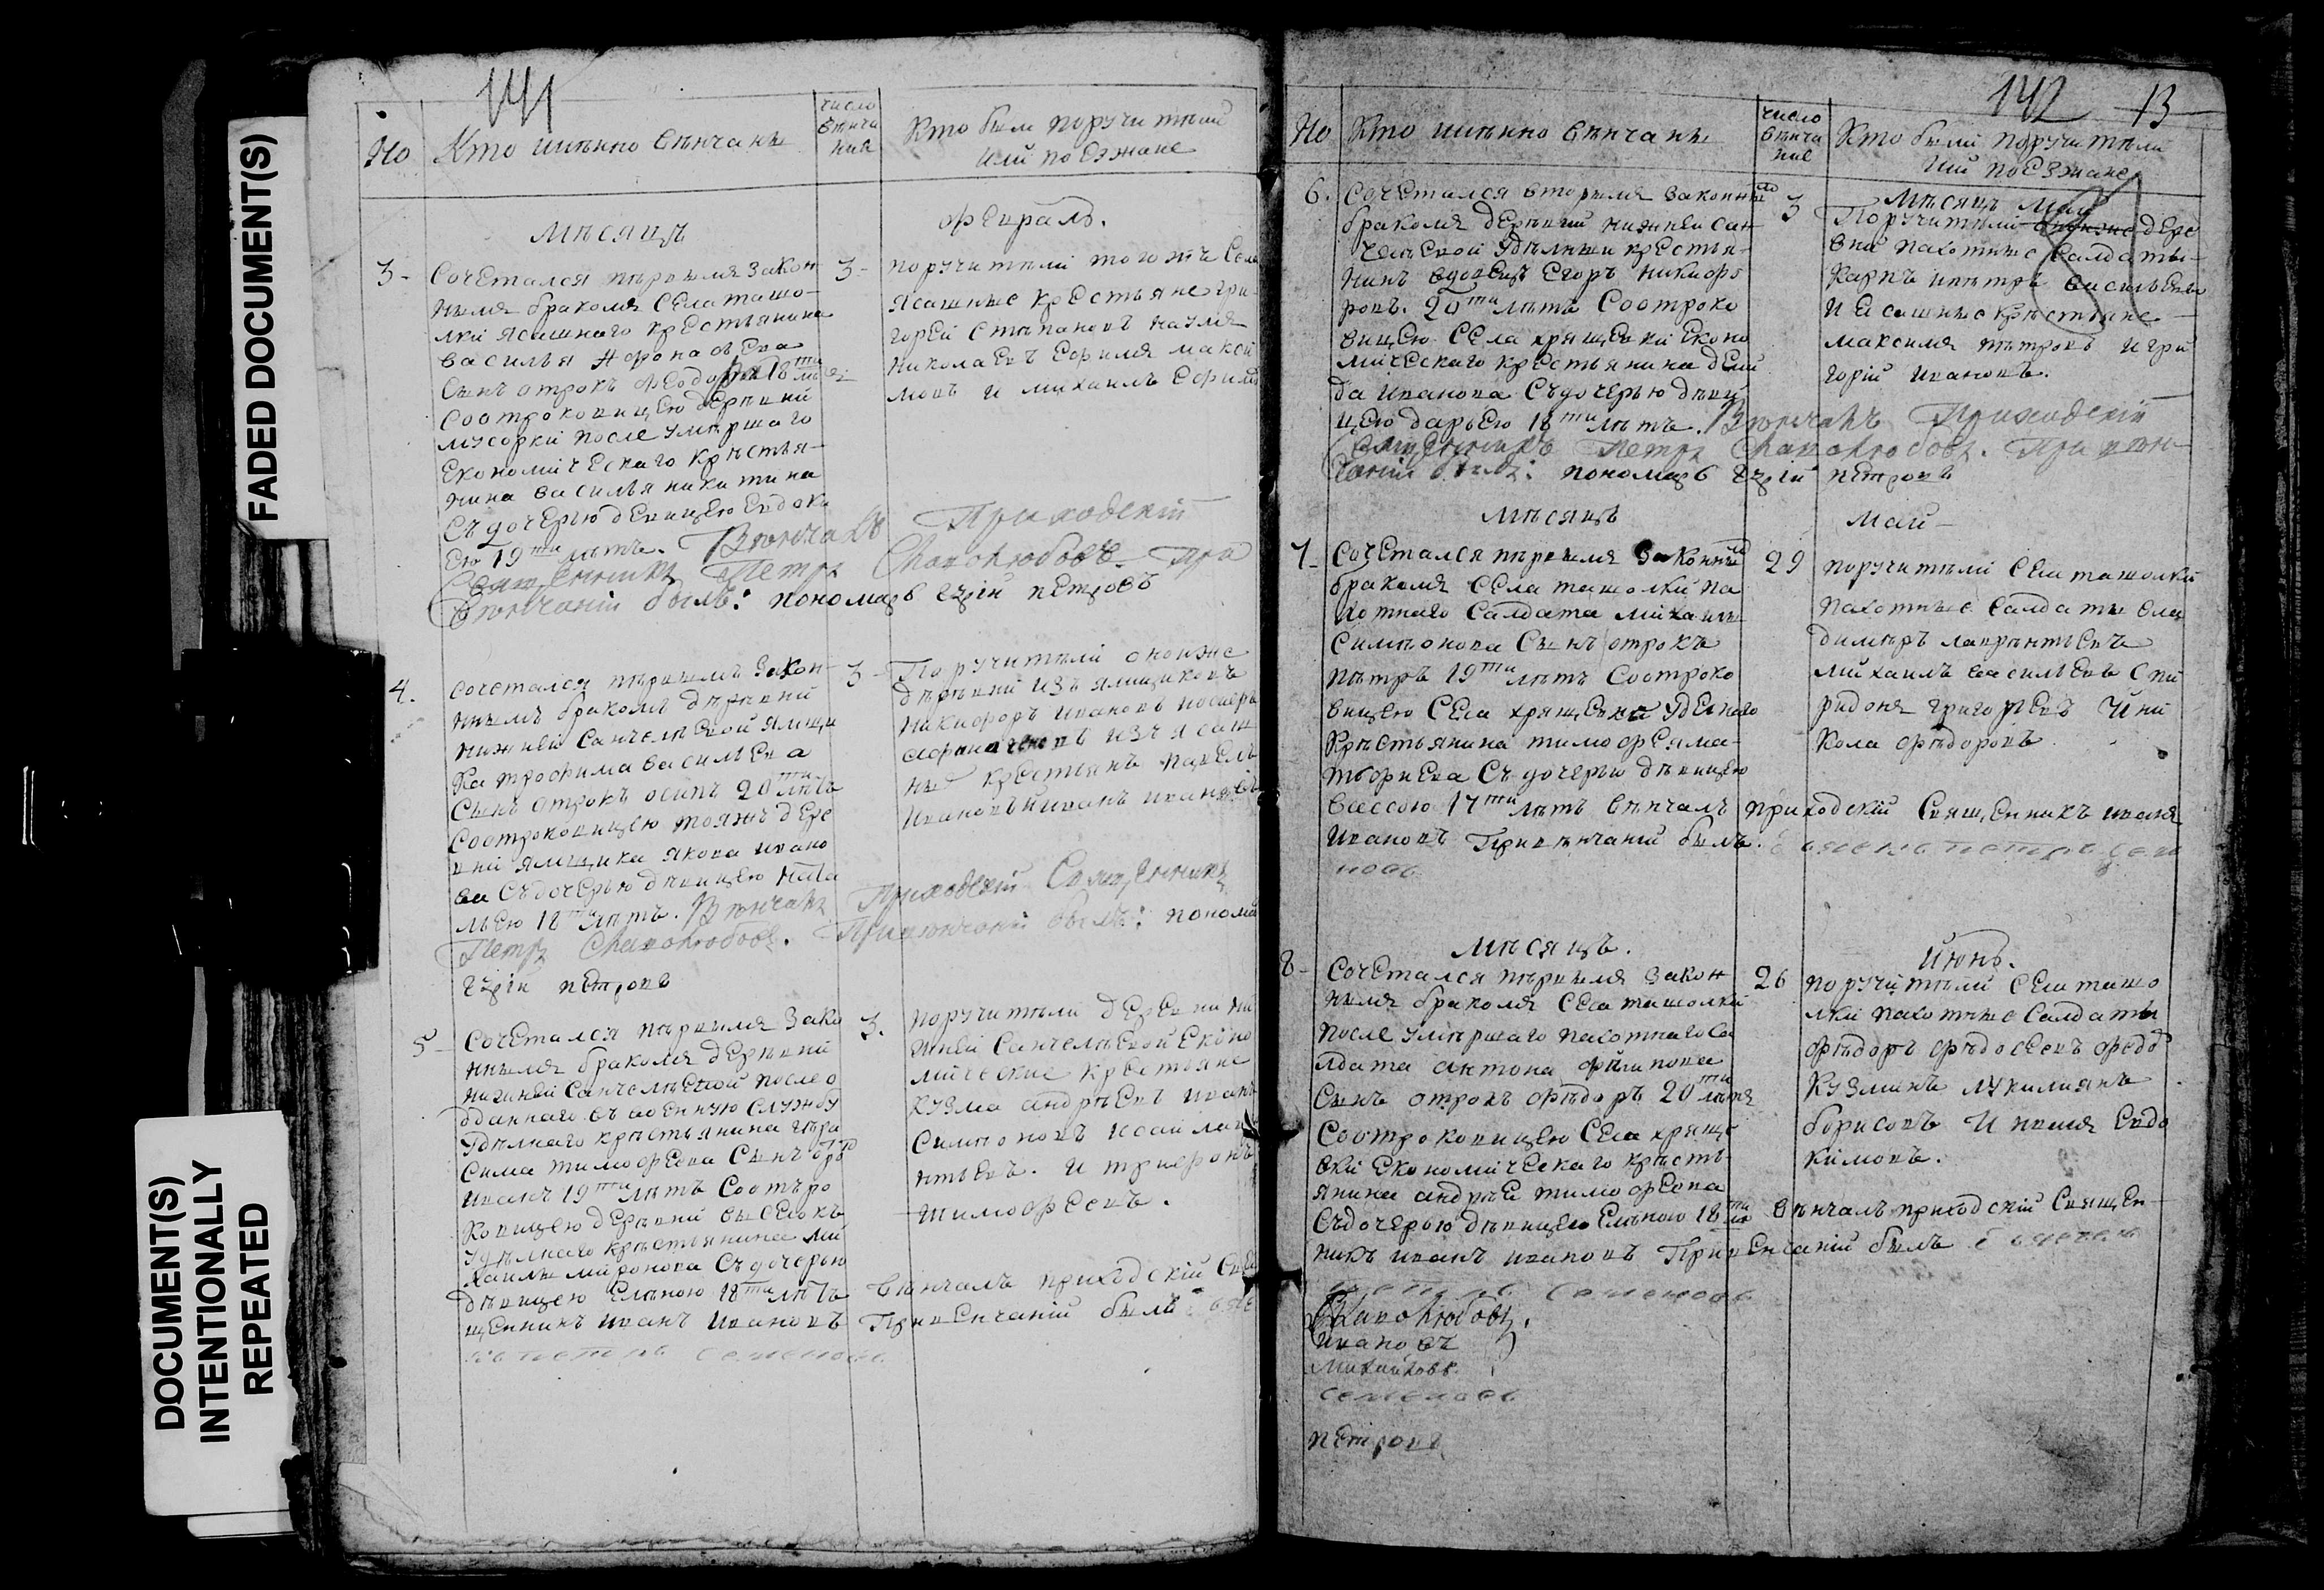 FADED DOCUMENT(S)
DOCUMENT(S)
INTENTIONALLY
REPEATED
141
Но
Кто имѣнно вѣнчаны
число
вѣнча
ния
Кто были поручитѣли
или поезжане
Мѣсяцъ
февраль.
3 -
Сочетался пѣрвымя закон
нымя бракомя села ташо-
лки ясашнаго крестьянина
василья Афонасьева
сынъ отрокъ феодоръ 18 ти лѣ
соотроковицею деревни
мусорки после умѣршаго
економическаго крѣстья-
нина василья никитина
съ дочерью девицею евдоки
ею 19 ти лѣтъ. Вѣнчалъ Приходскій
Священникъ Петръ Славолюбовъ. При
вѣнчаніи былъ: пономарь петровъ
3 -
поручитѣли тогожъ села
ясашные крестьяне гри
горей стѣпановъ наумя
николаевъ ефимя макси
мовъ и михаилъ ефимо
4.
сочетался пѣрвымъ закон-
нымъ бракомъ дѣрѣвни
нижней Санчелѣевой ямщи
ка трофима васильева
сынъ отрокъ осипъ 20 ти лѣтъ
соотроковицею тояжъ дере
вни ямщика якова ивано
ва съ дочерью дѣвицею ната
льею 18 ти лѣтъ. Вѣнчалъ Приходскій Священникъ
Петръ Славолюбовъ. При вѣнчаніи былъ: понома
петровъ
3 -
Поручитѣли оноиже
дѣрѣвни изъ ямщиковъ
никифоръ ивановъ
изъ ясаш
ныхъ крестьянъ павелъ
ивановъ и иванъ ивановъ
5 -
Сочетался пѣрвымя зако
ннымя бракомя дѣрѣвни
нижней Санчелѣевой после о
тданнаго въ военную службу
удѣлнаго крѣстьянина гѣра
сима тимофеева сынъ
иванъ 19 ти лѣтъ соотъро
ковицею дѣрѣвни выселокъ
удѣлнаго крѣстьянина ми
хаилы миронова съ дочерью
дѣвицею еленою 18 ти лѣтъ вѣнчалъ приходскій свя
щенникъ иванъ ивановъ При венчаніи былъ
петръ семеновъ
3.
поручитѣли деревни ни
жней Санчелѣевой еконо
мические крестьяне
кузма андрѣевъ иванъ
симионовъ исаи лаврѣ
нтьевъ. и трифонъ
тимофеевъ.
142 13
Но
Кто имѣнно вѣнчаны
число
вѣнча
ние
Кто были поручитѣли
или поезжане
6.
Сочетался вторымя законны
бракомя дѣрѣвни нижней сан
челѣевой удѣлныи крестья-
нинъ вдовецъ егоръ никифо
ровъ. 20 ти лѣтъ соотроко
вицею села хрящевки еконо
мическаго крестьянина деми
да иванова съ дочерью дѣви
цею дарьею 18 ти лѣтъ. Вѣнчалъ Приходскій
Священникъ Петръ Славолюбовъ. При вѣн-
чаніи былъ: пономарь петровъ
3
Мѣсяцъ май
Поручитѣли дере
вни пахотные салдаты -
карпъ ипѣтръ васильевы
и есашные крѣстьяне -
максимя пѣтровъ и гри
горій ивановъ.
Мѣсяцъ
май -
7 -
Сочетался пѣрвымя законны
бракомя села ташолки па
хотнаго салдата михаилы
симѣонова сынъ отрокъ
пѣтръ 19 ти лѣтъ соотроко
вицею села хрящевки уделнаго
крѣстьянина тимофея ма-
твѣева съ дочерью дѣвицею
вассою 17 ти лѣтъ вѣнчалъ приходскій священникъ иваня
ивановъ При вѣнчаніи былъ. петръ семе
новъ
29
поручитѣли села ташолки
пахотные салдаты вла
димѣръ лаврѣнтьевъ
михаилъ васильевъ спи
ридоня григорьевъ и ни
кола фѣдоровъ.
Мѣсяцъ.
июнь.
8 -
Сочетался пѣрвымя закон
нымя бракомя села ташолки
после умѣршаго пахотнаго са
лдата антона филипова
сынъ отрокъ фѣдоръ 20 ти лѣтъ
соотроковицею села хряще
вки економическаго крѣсть
янина андрѣе тимофеева
съ дочерью дѣвицею еленою 18 ти лѣ вѣнчалъ приходскій священ-
никъ иванъ ивановъ При венчаніи былъ
петръ семеновъ
26
поручитѣли села ташо
лки пахотные салдаты
фѣдоръ фѣдосеевъ федо
кузминъ лукилиянъ
борисовъ и евдо
кимовъ.
Славолюбовъ.
ивановъ
Михайловъ
семеновъ
петровъ